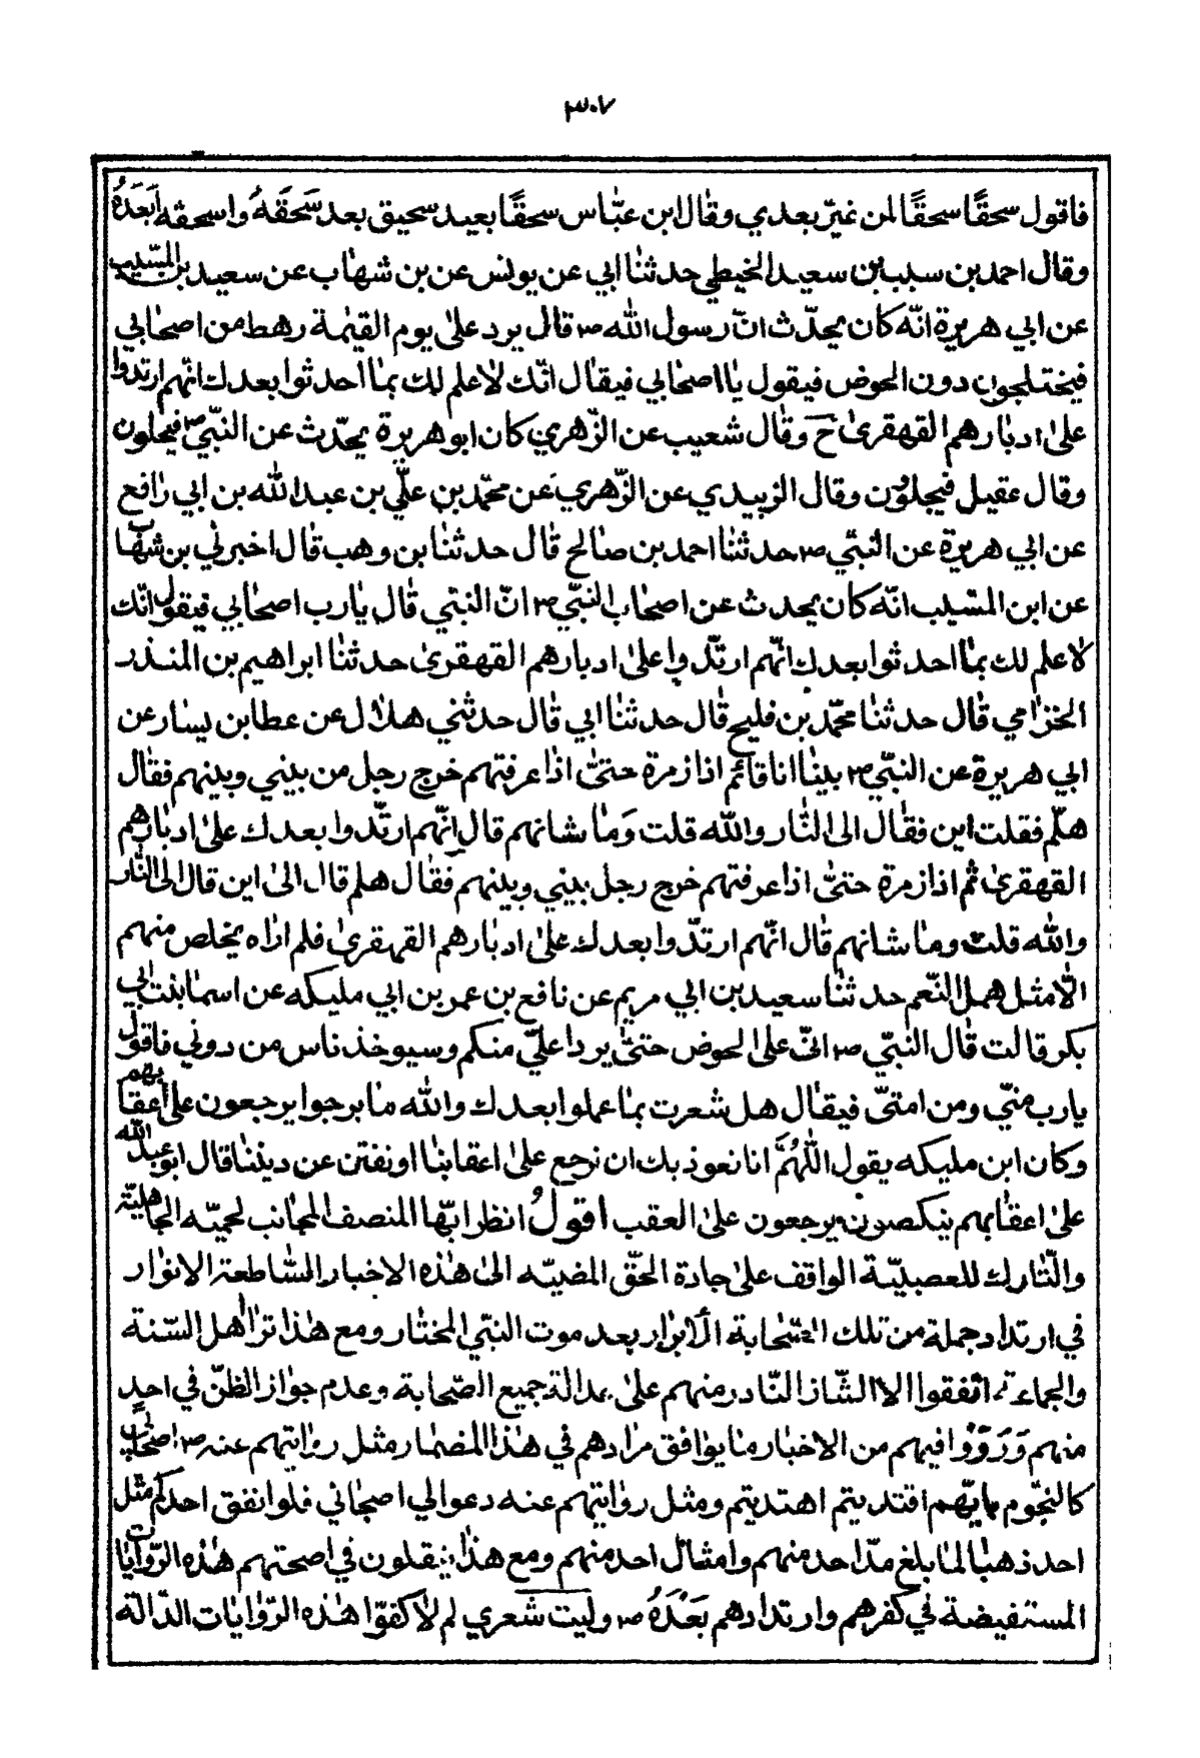 ٣٠٧
فاقول سحقًا سحقًا لمن غيّر بعدي وقال ابن عبّاس سحقًا بعيد سحيق بعد سَحَقَهُ واسحقه اَبَعَدَهُ
وقال احمد بن سبب بن سعيد الخيطي حدثنا ابي عن يونس عن بن شهاب عن سعيد بن المسّيب
عن ابي هريرة انّه كان يحدّث انّ رسول الله ص قال يرد على يوم القيمة رهط من اصحابي
فيختلجون دون الحوض فيقول يا اصحابي فيقال انّك لا علم لك بما احدثوا بعدك انّهم ارتدوا
على ادبارهم القهقرى خ وقال شعيب عن الزّهري كان ابو هريرة يحدّث عن النبّي ص فيجلون
وقال عقيل فيجلؤن وقال الزبيدي عن الزّهري عن محمّد بن علّي بن عبد الله بن ابي رافع
عن ابي هريرة عن النبّي ص حدثنا احمد بن صالح قال حدثنا بن وهب قال اخبرني بن شهاب
عن ابن المسّيب انّه كان يحدث عن اصحاب النبّي ص انّ النبّي قال يا رب اصحابي فيقول انّك
لا علم لك بما احدثوا بعدك انّهم ارتدّوا على ادبارهم القهقرى حدثنا ابراهيم بن المنذر
الخزامي قال حدثنا محمّد بن فليح قال حدثنا ابي قال حدثني هلال عن عطا بن يسار عن
ابي هريرة عن النبّي ص بينا انا قائم اذا زمرة حتىّ اذا عرفتهم خرج رجل من بيني وبينهم فقال
هلّم فقلت اين فقال الى النّار والله قلت وَما شانهم قال انّهم ارتدّوا بعدك على ادبارهم
القهقرى ثم اذا زمرة حتىّ اذا عرفتهم خرج رجل بيني وبينهم فقال هلم قال الى اين قال الى النّار
والله قلت وما شانهم قال انّهم ارتدّوا بعدك على ادبارهم القهقرى فلم اراه يخلص منهم
الّا مثل همل النّعم حدثنا سعيد بن ابي مريم عن نافع بن عمر بن ابي مليكه عن اسما بنت ابي
بكر قالت قال النبّي ص انّى على الحوض حتىّ يرد اعليّ منكم وسيوخذ ناس من دوني فاقول
يا رب منيّ ومن امتىّ فيقال هل شعرت بما عملوا بعدك والله ما برجوا يرجعون على اعقابهم
وكان ابن مليكه يقول اللهُمَّ انا نعوذ بك ان نرجع على اعقابنا او نفتن عن ديننا قال ابو عبد الله
على اعقابهم ينكصون يرجعون على العقب اقولُ انظر ايّها المنصف المجانب لحميّه الجاهليّة
والتّارك للعصبيّة الواقف على جادة الحقّ المضيّه الى هذه الاخبار السّاطعة الانوار
في ارتداد جملة من تلك الصّحابة الأبرار بعد موت النبّي المختار ومع هذا ترا اهل السّنة
والجماعة اتفقوا الا الشّاز النّادر منهم على عدالة جميع الصّحابة وعدم جواز الظنّ في احدٍ
منهم وَرَوَوْا فيهم من الاخبار ما يوافق مرادهم في هذا المضمار مثل روايتهم عنه ص اصحابي
كالنجّوم بايّهم اقتديتم اهتديتم ومثل روايتهم عنه دعوا لي اصحابي فلو انفق احدكم مثل
احد ذهبا لما بلغ مدّ احد منهم وامثال احد منهم ومع هذا ينقلون في اصحتهم هذه الرّوايات
المستفيضة في كفرهم وارتدادهم بَعْدَهُ ص وليت شعري لم لا كفوّا هذه الرّوايات الدّالة